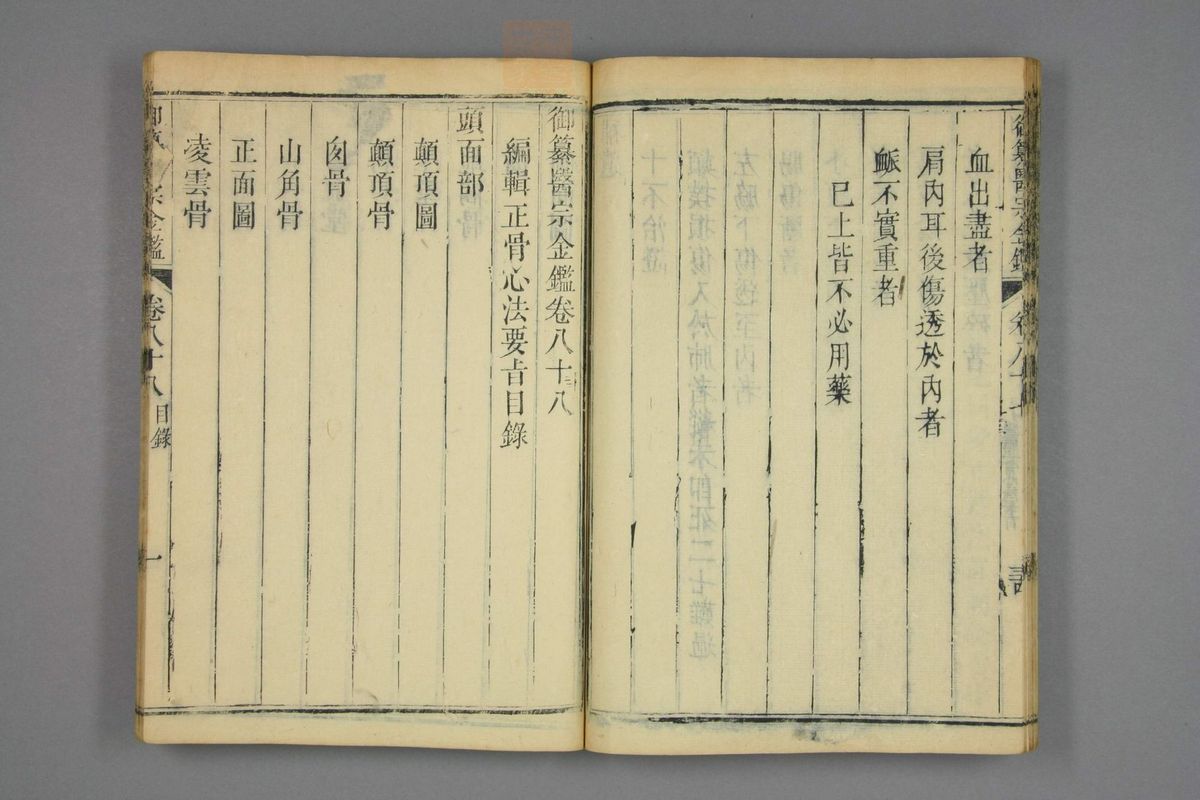 血出盡者
肩內耳後傷透於內者
脈不實重者
巳上皆不必用藥
御纂醫宗金鑑
御纂醫宗金鑑卷八十八
編輯正骨心法要㫖目錄
頭面部
顛頂圖
顛頂骨
囟骨
山角骨
正面圖
凌雲骨
宗金鑑
卷八十八
目錄
一